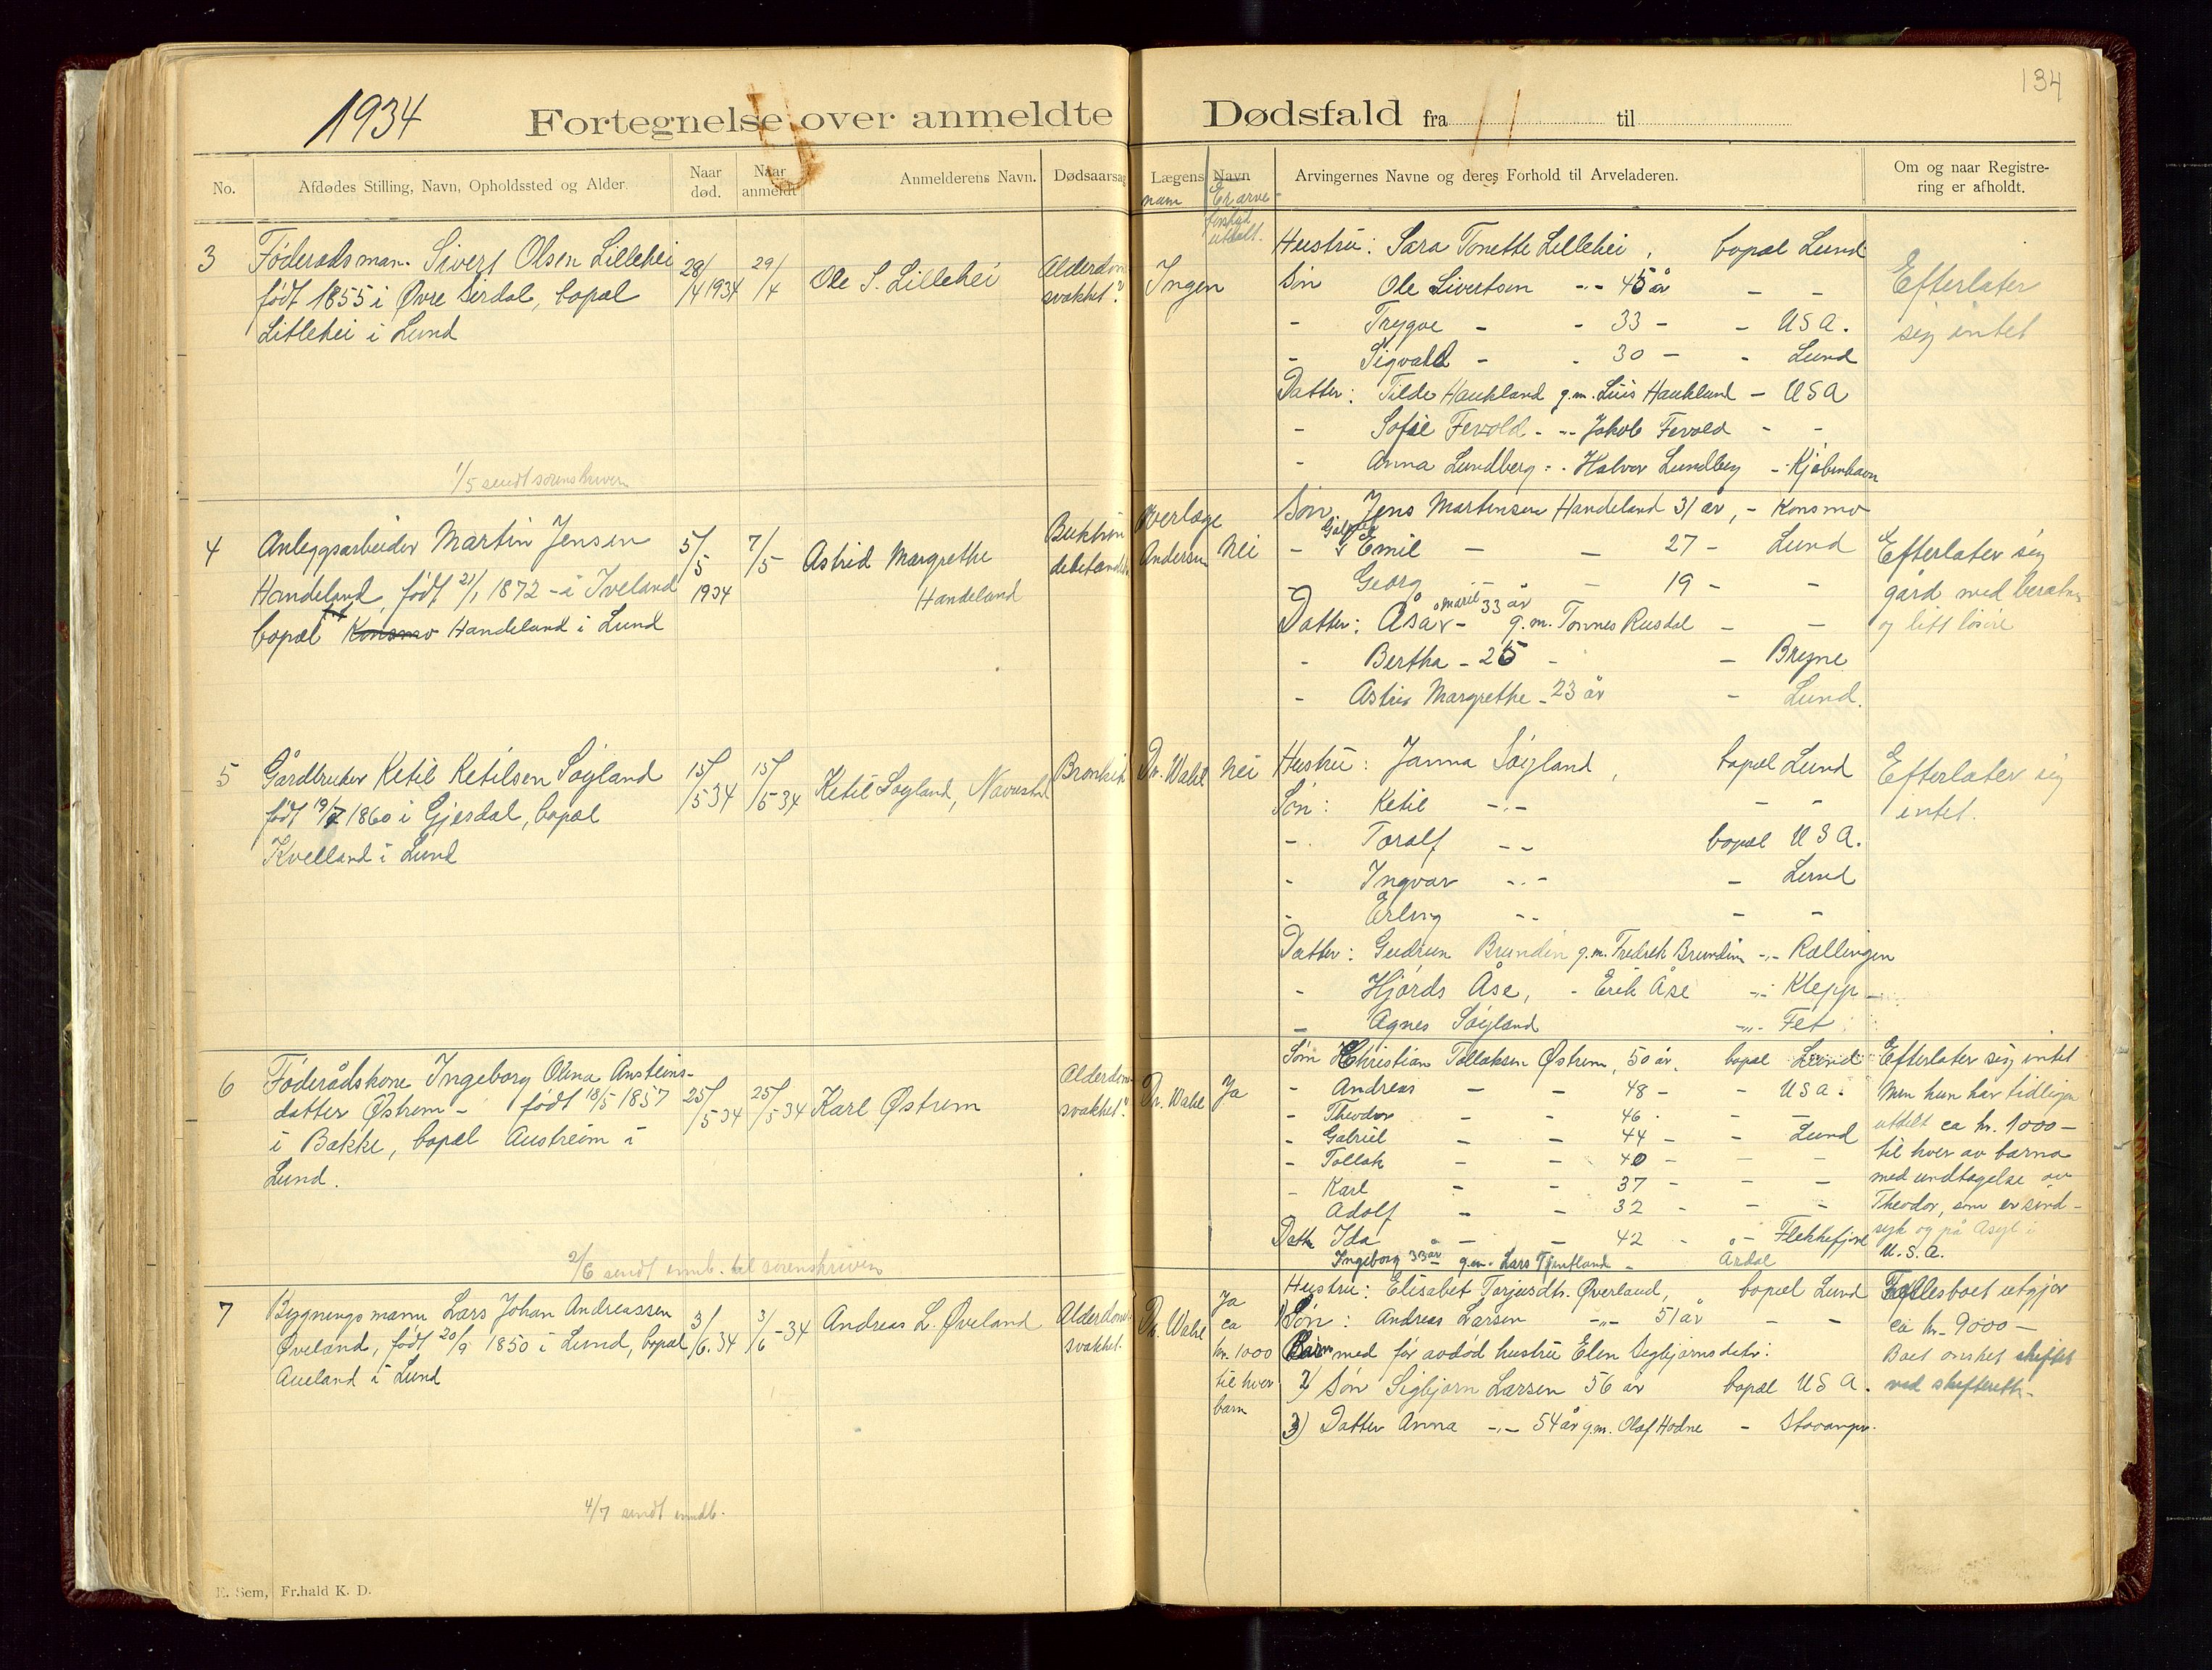 134
1934
Fortegnelse over anmeldte Dødsfald fra 11 til
No. Afdødes Stilling, Navn, Opholdssted og Alder. Naar død. Naar anmeldt Anmelderens Navn. Dødsaarsag Lægens Navn Arvingernes Navne og deres Forhold til Arveladeren. Om og naar Registrering er afholdt.
navn Er arve
forskud
utdelt.
3 Føderådsman. Sivert Olsen Lillehei
født 1855 i Øvre Sirdal, bopæl
Litlehei i Lund
28/4 1934 29/4 Ole S. Lillehei
Alderdom
svakhet? Ingen
Hustru: Sara Tonette Lillehei, bopæl Lund
Søn Ole Sivertsen -"- 45 år - -
- Trygve - - 33 - - USA.
- Sigvald - - 30 - - Lund
Datter: Tilde Haukland g.m. Luis Haukland - USA
- Sofie Fevold - -"- Jakob Fevold - -
- Anna Lundberg - - Halvor Lundberg - Kjøbenhavn
Efterlater
sig intet
1/5 sendt sorenskriveren
4 Anleggsarbeider Martin Jensen
Handeland, født 21/1 1872 - i Iveland
bopæl Konsmo Handeland i Lund
5/5 1934 7/5 Astrid Margrethe
Handeland
Overlæge
Andersen Nei
Søn Jens Martinsen Handeland 31 år, - Konsmo
- Emil - - 27 - Lund
- Georg - - 19 - -
Datter: Åsa 33 år g.m. Tønnes Rusdal - -
- Bertha - 25 - - Bryne
- Astrid Margrethe - 23 år - Lund.
Efterlater sig
gård med besætn.
og litt løsøre
5 Gårdbruker Ketil Ketilsen Søyland
født 19/7 1860 i Gjesdal, bopæl
Kvelland i Lund
15/5 34 15/5 34 Ketil Søyland, Navestad
Bronkit Dr. Wahl Nei
Hustru: Janna Søyland, bopæl Lund
Søn: Ketil -"- - -
- Toralf - - bopæl USA.
- Ingvar -"- - Lund
- Erling -"- - -
Datter: Gudrun Brundin g.m. Fredrik Brundin -"- Rællingen
- Hjørds Åse, - Erik Åse -"- Klepp
- Agnes Søyland -"- Fet
Efterlater sig
intet.
6 Føderådskone Ingeborg Olina Austeins-
datter Østrem - født 18/5 1857
i Bakke, bopæl Austreim i
Lund.
25/5 34 25/5 34 Karl Østrem
Alderdom
svakhet". Dr. Wahl Ja
Søn Christian Tollaksen Østrem, 50 år, bopæl Lund
- Andreas - - 48 - - USA.
- Theodor - - 46 -
- Gabriel - - 44 - - Lund
- Tollak - - 40 - - -
- Karl - - 37 - - -
- Adolf - - 32 - - -
Datter Ida - - 42 - - Flekkefjord
Ingeborg 33 år g.m. Lars Tjentland - Årdal
Efterlater sig intet
Men hun har tidligere
utdelt ca kr. 1000 -
til hver av barna
med undtagelse av
Theodor, som er sind-
syk og på Asyl i
U.S.A.
2/6 sendt innb. til sorenskriveren
7 Bygningsmann Lars Johan Andreassen
Øveland, født 20/9 1850 i Lund, bopæl
Aueland i Lund
3/6.34 3/6-34 Andreas L. Øveland
Alderdoms
svakhet. Dr. Wahl
Ja
ca
kr. 1000
til hver
barn
Hustru: Elisabet Tarjeisdtr. Øverland, bopæl Lund
1) Søn: Andreas Larsen -"- 51 år - -
Barn med før avdød hustru Elen Sigbjørnsdotr:
2) Søn Sigbjørn Larsen 56 år bopæl USA.
3) Datter Anna -"- 54 år g.m. Olaf Hodne - Stavanger.
Fællesboet utgjør
ca kr. 9000 -
Boet ønsket skiftet
ved skifterett.
4/7 sendt innb.
E. Sem, Fr.hald K. D.